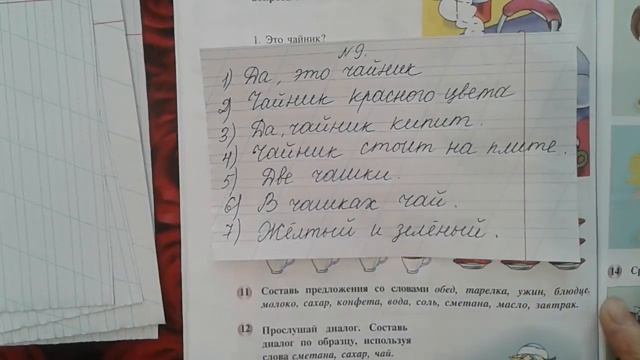 1. Это чайник?
N 9.
1) Да, это чайник
2) Чайник красного цвета
3) Да, чайник кипит.
4) Чайник стоит на плите.
5) Две чашки.
6) В чашках чай.
7) Жёлтый и зелёный.
11 Составь предложения со словами обед, тарелка, ужин, блюдце,
молоко, сахар, конфета, вода, соль, сметана, масло, завтрак.
14
12 Прослушай диалог. Составь
диалог по образцу, используя
слова сметана, сахар, чай.